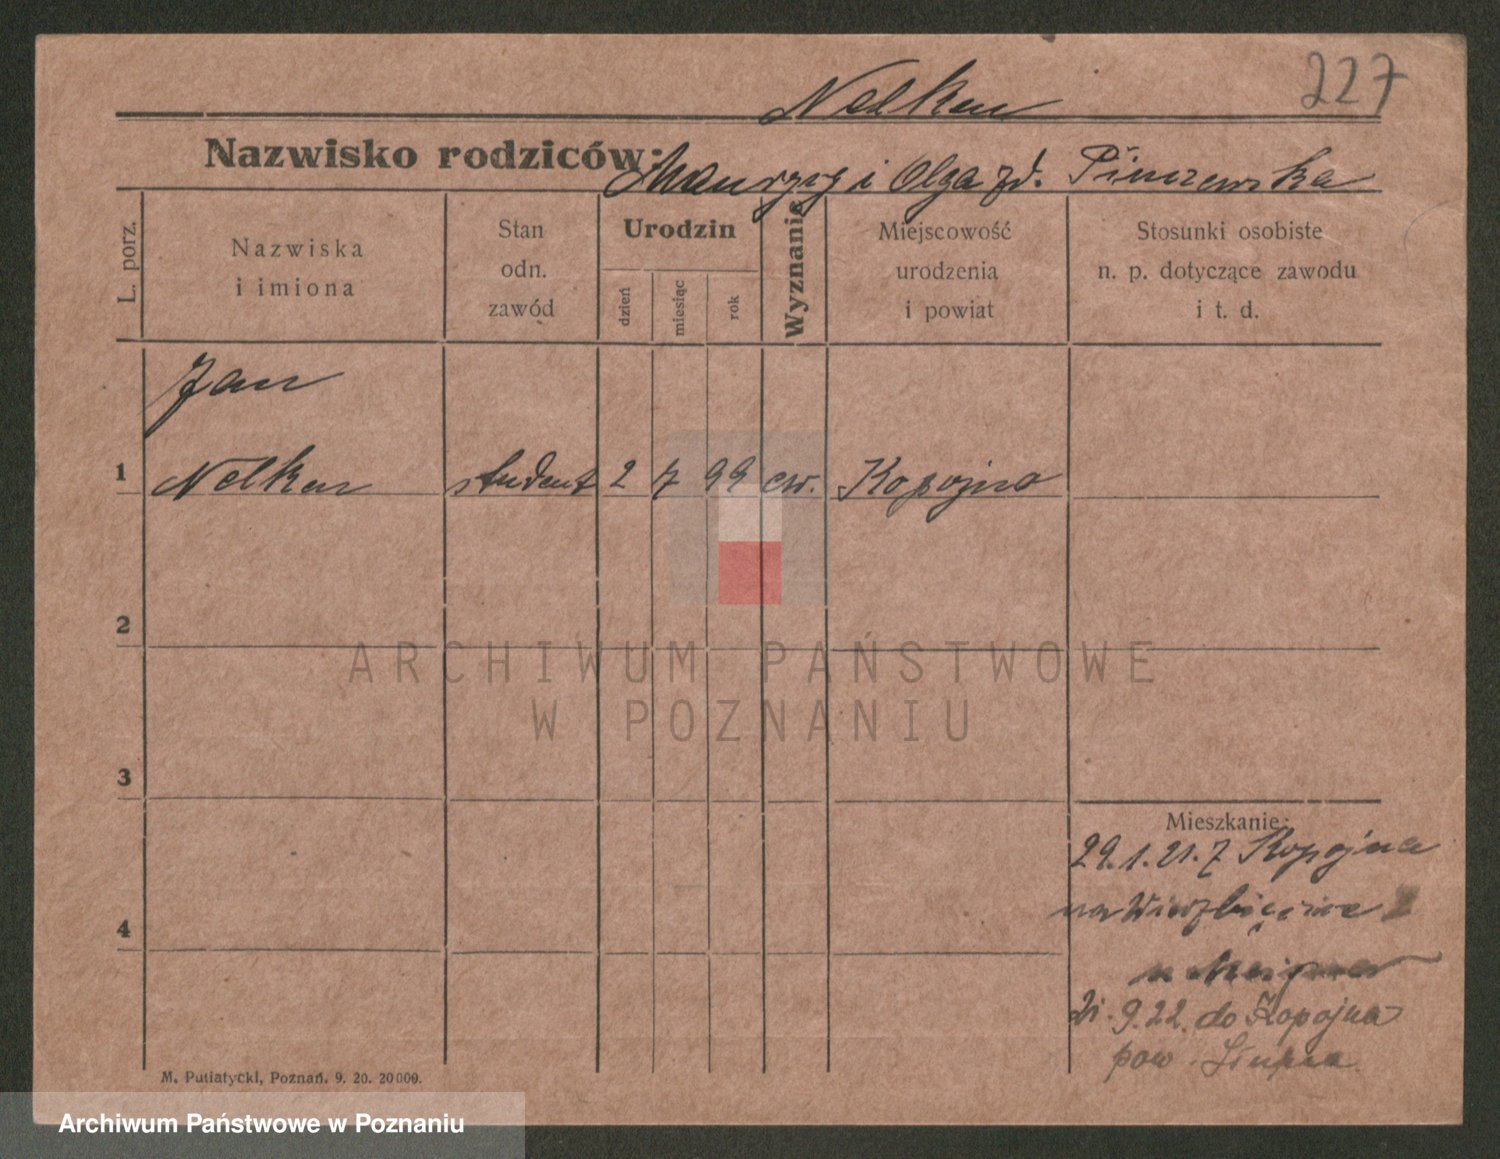 227
Nelken
Nazwisko rodziców: Maurycy i Olga zd. Pinczewska
L. porz.
Nazwiska i imiona
Stan odn. zawód
Urodzin
dzień
miesiąc
rok
Wyznanie
Miejscowość urodzenia i powiat
Stosunki osobiste n. p. dotyczące zawodu i t. d.
Jan
1 Nelken student 2 7 99 ew. Kopojno
2
ARCHIWUM PAŃSTWOWE
W POZNANIU
3
4
Mieszkanie:
29.1.21. z Kopojna
na Wierzbięcice
21.9.22. do Kopojna
pow. Słupca
M. Putiatycki, Poznań. 9. 20. 20000.
Archiwum Państwowe w Poznaniu